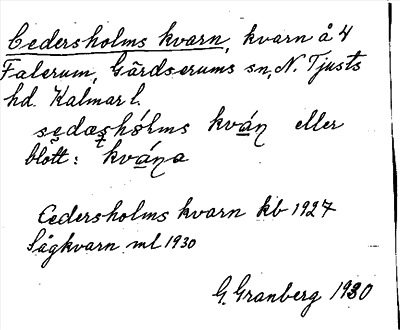 Cedersholms kvarn, kvarn å 4
Falerum, Gärdserums sn, N. Tjusts
hd. Kalmar l.
sedæshólms kván eller
blott: kvána
Cedersholms kvarn kb 1927
Sågkvarn ml 1930
G. Granberg 1930